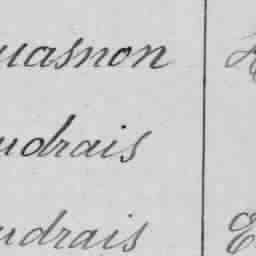 uasnon
udrais
udrais E